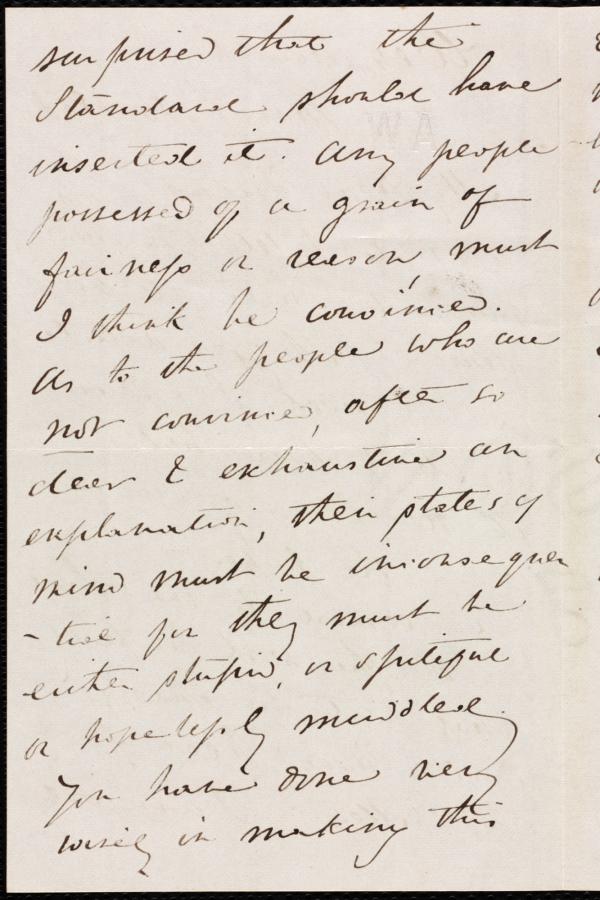 surprised that the
Standard should have
inserted it. Any people
possessed of a grain of
fairness or reason, must
I think be convinced.
As to the people who are
not convinced, after so
clear & exhaustive an
explanation, their states of
mind must be inconsequen
-tial for they must be
either stupid, or spiteful
or hopelessly muddled.
You have done very
wisely in making this